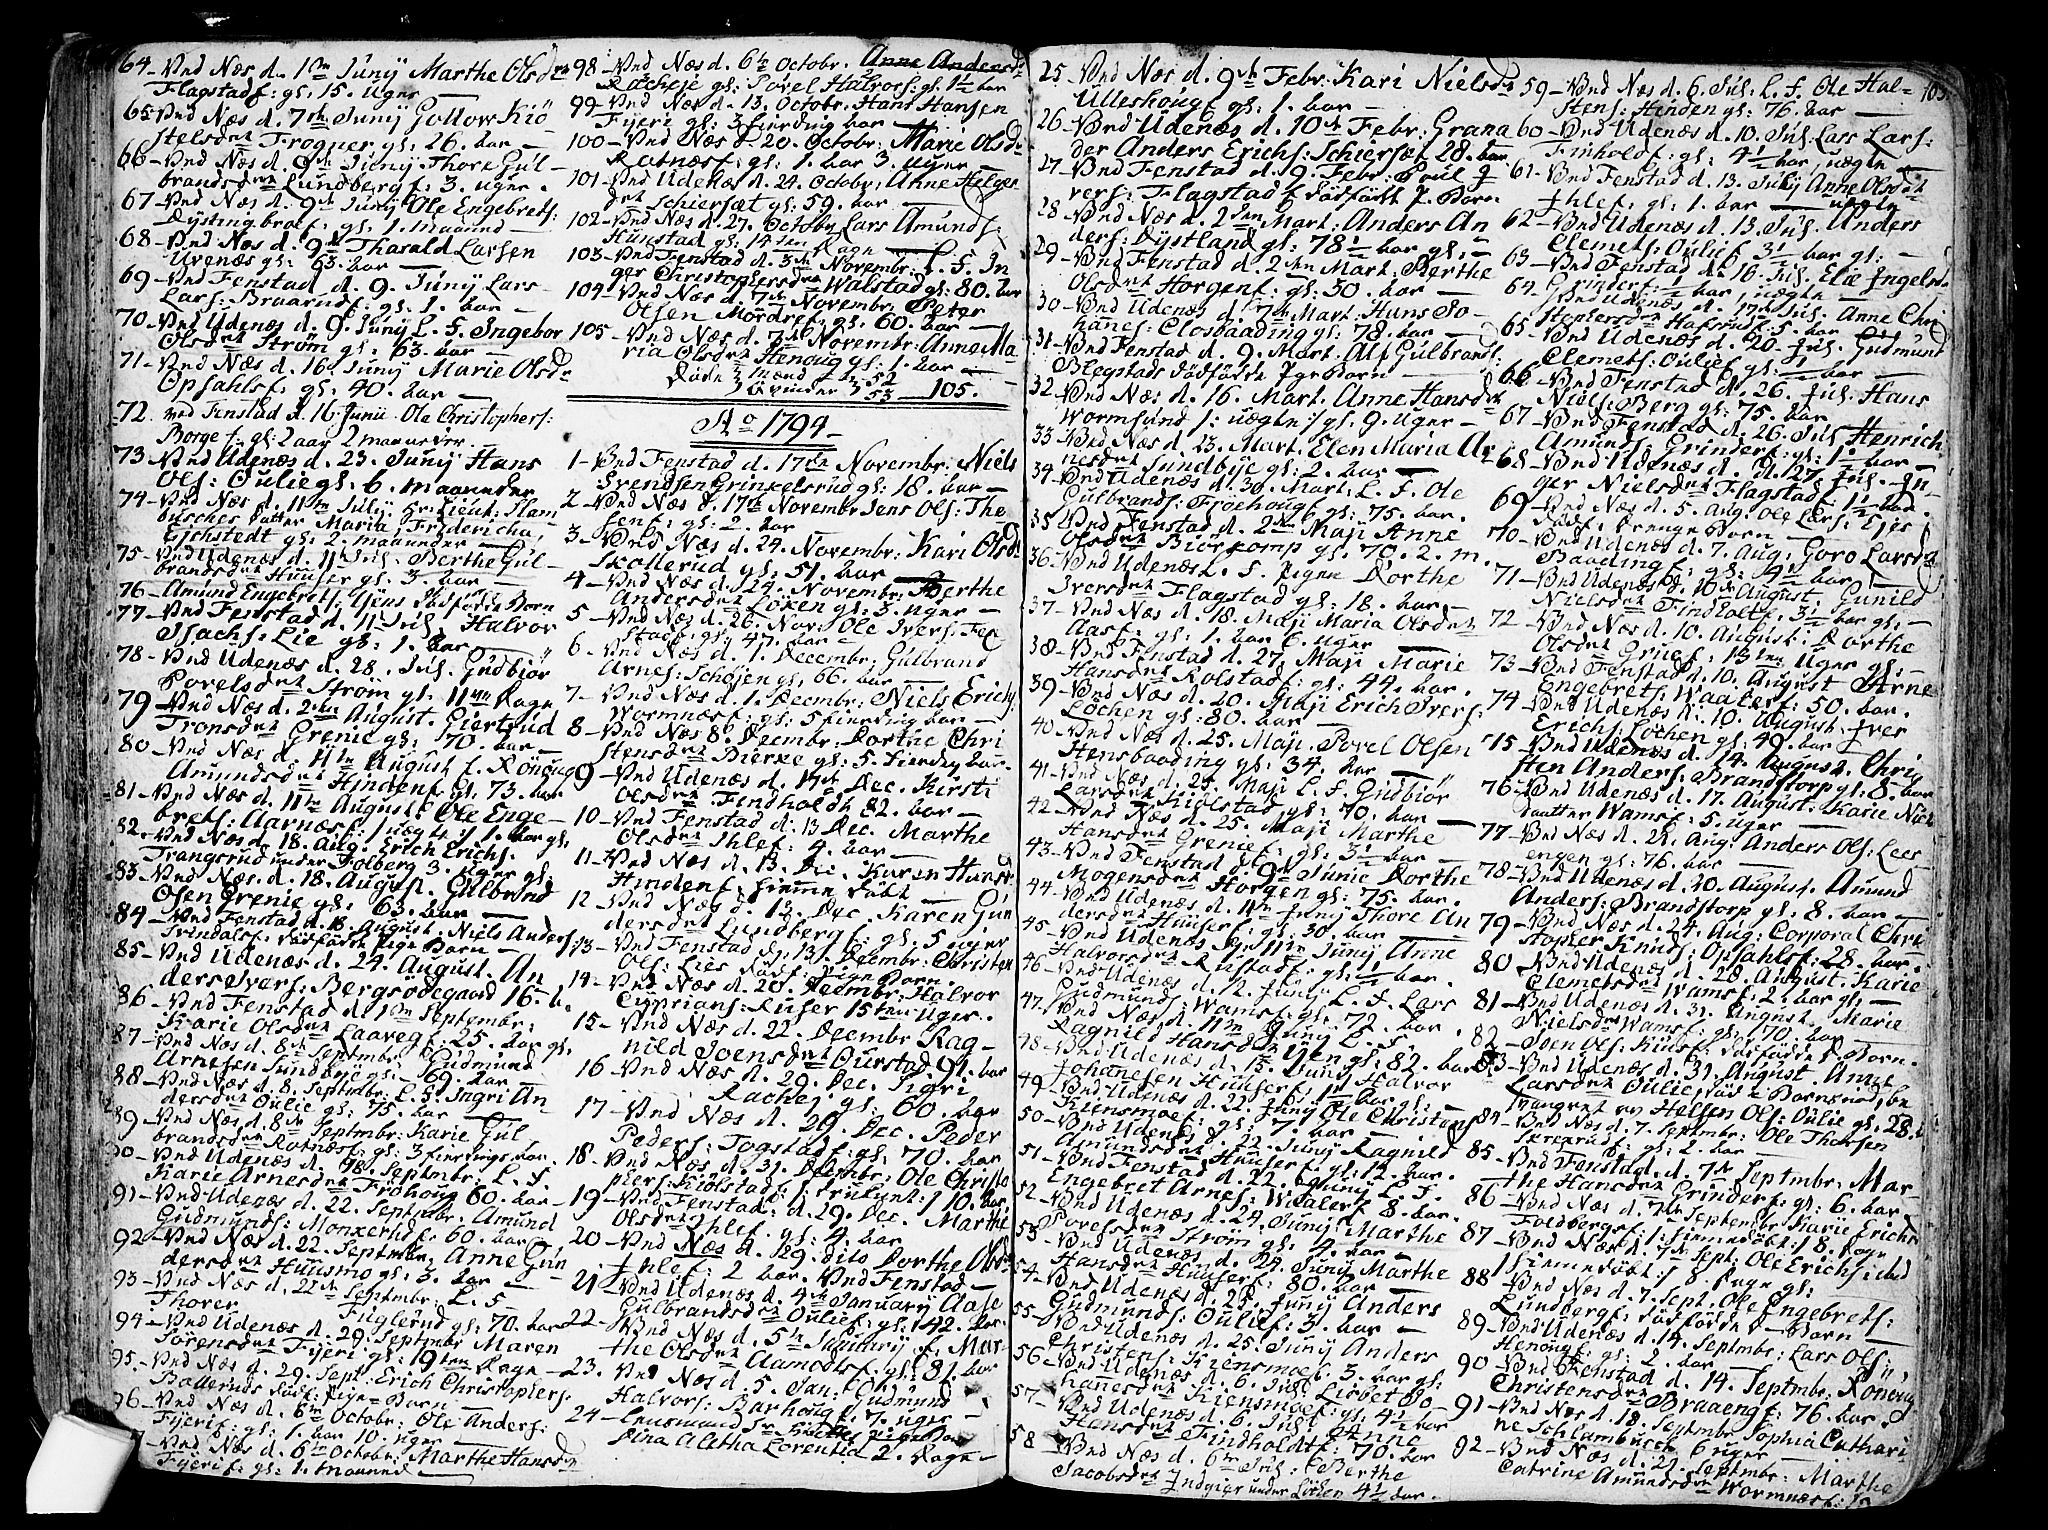 64 - Vnd Næs d. 1ste Junÿ Marthe Olsdr
Flagstadf: gl: 15. Uger
65 - Vnd Næs d. 7de Junÿ
Frogner gl: 26. aar
66 - Vnd Næs d. 9de Junÿ Thore Gul-
brandsdtr Lundberg f: 3. uger.
67 - Vnd Næs d. 9de Junÿ Ole Engebrets:
gl: 1. maaned
68 - Vnd Næs d. 9de Tharald Larsen
Urenæs gl: 63. aar
69 - Vnd Fenstad d. 9. Junÿ Lars
Lars: Braarudf: gl: 1. aar
70 - Vnd Udenæs d. 9. Junÿ L. F. Ingebor
Olsdtr Strøm gl: 63. aar
71 - Vnd Næs d. 16. Junÿ Marie Olsdr
Opsahlsf: gl: 40. aar
72. ved Fenstad d. 16 Junii Ole Christophers:
Borge f: gl: 2 aar 2 maaneder
73 Vnd Udenæs d. 23. Junÿ Hans
Ols: Oulie gl: 6. maaneder
74 - Vnd Næs d. 11te Julÿ Hr: Lieut:
datter Maria Fridericha
gl: 2. maaneder
75 - Vnd Udenæs d. 11te Jul: Berthe Gul-
brandsdtr Huuser gl: 3. aar
76 - Amund Engebrets: dødfødde Born
77 - Vnd Fenstad d. 11te Jul: Halvor
Isachs: Lie gl: 1. aar
78 - Vnd Udenæs d. 28. Jul: Gudbiør
Povelsdtr Strøm gl: 11 Dage
79 - Vnd Næs d. 2den August. Giertrud
Tronsdtr Grenie gl: 70. aar
80 - Vnd Næs d. 11te August f. Rønnug
Amundsdtr Hindenf: gl: 73. aar
81 - Vnd Næs d. 11te August Ole Enge-
brets: Aarnæs f: 1. aar gl:
82. Vnd Næs d. 18. Aug. Erich Erichs:
Trangsrud under Folberg 3. uger gl:
83 - Vnd Næs d. 18. August. Gulbrand
Olsen Grenie gl: 63. aar
84 - Vnd Fenstad d. 18. August. Niels Anders:
dødfødde Pige Barn
85 - Vnd Udenæs d. 24. August. An
ders Ivers: Bergsødegaard 16.
86 - Vnd Fenstad d. 1ste Septembr:
Karie Olsdtr Laavegf: 25. aar gl:
87 - Vnd Næs d. 8de Septembr: Gudmund
Arnesen Sundbÿe gl: 69. aar
88 - Vnd Næs d. 8. Septembr: L. F. Ingri An-
dersdtr Oulie gl: 75. aar
89 - Vnd Næs d. 8de Septmbr: Karie Gul
brandsdtr Ratnæsf: gl: 3 fierdings aar.
90 - Vnd Udenæs d. 18. Septmbr: L. F.
Karie Arnesdtr Frøhoug 60. aar
91 - Vnd Udenæs d. 22. Septmbr. Amund
Gudmunds: f: 60. aar
92 - Vnd Næs d. 22. Septmbr. Anne Gun
dersdtr Huusmo gl: 3. aar
93 - Vnd Næs d. 22de Septmbr: L. F.
Thorer Fuglerud gl: 70. aar
94 - Vnd Udenæs d. 29. Septmbr Maren
Sørensdtr Fÿeri gl: 19ten Dage
95. Vnd Næs d. 29. Sept: Erich Christophers:
Ballerud dødf: Pige Barn
96 - Vnd Næs d. 6te Octobr: Ole Anders:
Fÿerif: gl: 1. aar 10. uger
Vnd Næs d. 6te Octobr: Marthe Hansdtr
Fÿerif: gl: 1. maaned
98 - Vnd Næs d. 6te Octobr. Anne Andersdr
Racheje gl: Povel Halvors: gl: 1½ aar
99 - Vnd Næs d. 13. Octobr. Hans Hansen
Fÿeri gl: 3 fierding aar
100 - Vnd Næs d. 20. Octobr: Marie Olsdr
Ratnæsf: gl: 1. aar 3. uger
101 - Vnd Udenæs d. 24. Octobr: Anne Helge
dtr Schiersæt gl: 59. aar
102 - Vnd Næs d. 27. Octobr Lars Amunds:
Hunstad gl: 14ten Dage
103 - Vnd Fenstad d. 3de Novembr: L. F. In
ger Christophersdtr Walstad gl: 80. aar
104 - Vnd Næs d. 7de Novembr: Peter
Olsen Mordref: gl: 60. aar
105 - Vnd Næs d. 7de Novembr: Anne Ma
ria Olsdtr Henoug gl: 1. aar
Døde mænd 52
Qvinder 53 105.
Ao 1794
1 - Vnd Fenstad d. 17de Novembr: Niels
Svendsen Grinkelsrud gl: 18. aar
2 - Vnd Næs d. 17de Novembr Jens Ols: The
senf: gl: 2. aar
3 - Vnd Næs d. 24. Novembr: Kari Olsdr
Skollerud gl: 51. aar
4 - Vnd Næs d. 24. Novembr: Berthe
Andersdtr Løken gl: 3. uger
5 - Vnd Næs d. 26. Nov: Ole Ivers: Fen
stad f: gl: 47. aar
6 - Vnd Næs d. 1. Decembr: Gulbrand
Arnes: Schøjen gl: 66. aar
7 - Vnd Næs d. 1. Decmbr: Niels Erich:
Wormnæsf: gl: 5 fierding aar
8 - Vnd Næs 8de Decmbr: Dorthe Chri
stensdtr Bierke gl: 5. Fierding aar.
9 - Vnd Udenæs d. Dec. Kirsti
Olsdtr Findholdt 82. aar
10 - Vnd Fenstad d. 13 Dec. Marthe
Olsdtr Ihlef: 4. aar
11 - Vnd Næs d. 13. Dec. Karen Hansd
Hindenf: hiemme døbt
12 - Vnd Næs d. 13. Dec. Karen Gun
dersdtr Lundberg f: gl: 5 uger
13 - Vnd Fenstad d. 13. Decembr: Christen
Ols: Lies dødf: Pige Barn.
14 - Vnd Næs d. 20. Decmbr: Halvor
Cyprians: Ruser 15ten Uger.
15 - Vnd Næs d. 22. Decmbr Rag-
nild Joensdtr Ourstad 91. aar
16 - Vnd Næs d. 29. Dec. Sigri
Rachej gl: 60. aar
17 - Vnd Næs d. 29. Dec. Peder
Peders: Togstadf: gl: 70. aar
18 - Vnd Næs d. 31. Decmbr: Ole Christo
phers: Kiølstadf: 10. aar
19 - Vnd Fenstad: d. 29. Dec. Marthe
Olsdtr Ihlef: gl: 4. aar
20 - Vnd Næs d. 29. dito Dorthe Olsdr
Ihlef: 2 aar. Vnd Fenstad
21 - Vnd Udenæs d. 4de Januarÿ Aase
Gulbrandsdtr Oulief: gl: 42. aar
22 - Vnd Næs d. 5te Januarÿ f. Mar-
the Olsdtr Aamodtsf: gl: 81. aar
23. Vnd Næs d. 5. Jan: Gudmund
Halvors: Barhoug f: 7. uger
24 -
Sina Aletha Lorentia 2. Dage
25 - Vnd Næs d. 9de Febr: Kari Nielsdr
Ulleshougf gl: 1. aar
26 - Vnd Udenæs d. 10de Febr: Grana
der Anders Erichs: Schiersæt 28. aar
27 - Vnd Fenstad d. 9. Febr: Poul I
vers: Flagstad f: dødfødt P. Barn
28 - Vnd Næs d. 2den Mart: Anders An
ders: Dÿstland gl: 78½ aar gl:
29 - Vnd Fenstad d. 2den Mart: Berthe
Olsdtr Horgenf: gl: 30. aar
30 - Vnd Udenæs d. 7de Mart: Huns Jo-
hanes: Closbaading gl: 78. aar
31 - Vnd Fenstad d. 9. Mart. Alf Gulbrands:
Blegstads dødfødde Pge Barn
32 - Vnd Næs d. 16. Mart. Anne Hansdtr
Wormsund /: uægte :/ gl: 9. Uger
33 - Vnd Næs d. 23. Mart. Elen Maria Ar
nesdtr Sundbÿe gl: 2. aar
34 - Vnd Udenæs d. 30. Mart. L. F. Ole
Gulbrands: Frøehoug gl: 75. aar.
35 - Vnd Fenstad d. 2den Maji Anne
Olsdtr Biørkomp gl: 70. 2. m.
36 - Vnd Udenæs L. F. Pigen Dorthe
Iversdtr Flagstad gl: 18. aar
37 - Vnd Næs d. 18. Maji Maria Olsdtr
Aasf: gl: 1. aar 6. uger
38 - Vnd Fenstad d. 27. Maji Marie
Hansdtr Rolstadf: gl: 44. aar.
39 - Vnd Næs d. 20. Maji Erich Ivers:
Lochen gl: 80. aar
40 - Vnd Næs d. 25. Maji. Povel Olsen
Hensbaading gl: 34. aar
41 - Vnd Næs d. 25. Maji L. F. Gudbiør
Larsdtr Kiølstad gl: 70. aar
42 - Vnd Næs d. 25. Maji Marthe
Hansdtr Grenief: gl: 3½ aar
43 - Vnd Fenstad d. 9de Junie Dorthe
Mogensdtr Horgen gl: 75. aar.
44 - Vnd Udenæs d. 11te Junÿ Thore An
dersdtr Huuserf: gl: 30. aar
45 - Vnd Udenæs d. 11te Junÿ Anne
Halvorsdtr Rustadf: gl: aar.
46 - Vnd Udenæs d. 12. Junÿ L. F. Lars
Gudmunds: Wamsf: gl: 72. aar.
47. Vnd Næs d. 11te Junÿ L. F.
Ragnild Hansdtr gl: 82. aar
48 - Vnd Udenæs d. 15. Junÿ Halvor
Johanesen Huuserf: aar gl:
49 - Vnd Udenæs d. 22. Junÿ Ole Christens
Kiensmoef: gl: 7. aar
50 - Vnd Udenæs d. 22. Junÿ Ragnild
Amundsdtr Huuserf: gl: 12. aar.
51 - Vnd Fenstad d. 22. Junÿ L. F.
Engebret Arnes: Waalerf 8. aar.
52 - Vnd Udenæs d. 24. Junÿ Marthe
Povelsdtr Strøm gl: 4. aar
53 - Vnd Udenæs d. 24. Junÿ Marthe
Hansdtr Huuserf: 80. aar
54 - Vnd Udenæs d. 25. Junÿ Anders
Gudmunds: Oulief: 3. aar
55 - Vnd Udenæs d. 25. Junÿ Anders
Christens: Kiensmoef: 3. aar gl:
56 - Vnd Udenæs d. 6. Jul: Lisbet Jo-
hanesdtr Kiensmoef: gl: 4½ aar
57 - Vnd Udenæs d. 6. Jul: Anne
Hansdtr Findholdtf: 70. aar
58 - Vnd Næs d. 6te Jul: Berthe
Jacobsdtr Indgier under Løchen 4½ aar.
59 - Vnd Næs d. 6. Jul: L. F. Ole Hal-
stens: Hinden gl: 76. aar
60 - Vnd Udenæs d. 10. Jul: Lars Lars:
Finholdf: gl: 4½ aar, uægte
61 - Vnd Fenstad d. 13. Julÿ Anne Olsdtr
Ihlef: gl: 1. aar uægte
62 - Vnd Udenæs d. 13. Jul: Anders
Clemets: Oulief 3½ aar gl:
63 - Vnd Fenstad d. 16 Jul: Elie Ingelsd.
Grinderf: 1 aar, uægte
64 - Vnd Udenæs d. 17de Jul: Anne Chri
stophersdtr Hafsrud f: 5. aar
65 - Vnd Udenæs d. 20. Jul: Gudmund
Clemets: Oulief gl: aar
66 - Vnd Fenstad d. 26. Jul: Hans
Niels: Berg gl: 75. aar
67 - Vnd Fenstad d. 26. Jul: Henrich
Amunds: Grinderf: gl: 1½ aar
68 - Vnd Udenæs d. 27 Jul: In-
ger Nielsdtr Flagstadf: 1½ aar.
69 - Vnd Næs d. 5. Aug: Ole Lars:
dødf: Drenge Barn
70 - Vnd Udenæs d. 7. Aug: Goro Larsdr
Baadingf: gl: 9½ aar
71 - Vnd Udenæs d. 10de August Gunild
Nielsdtr Findholtf: 3½ aar gl:
72 - Vnd Næs d. 10. August: Dorthe
Olsdtr Gruef: 13ten Uger gl:
73 - Vnd Fenstad d. 10. August Arne
Engebrets: Waalerf: 50. aar.
74 - Vnd Udenæs d. 10. August Iver
Erichs: Lochen gl: 49. aar
75 - Vnd Udenæs d. 14. August. Chris
sten Anders: Brandstorp gl: 8. aar
76 - Vnd Udenæs d. 17. August: Karie Niels
daatter Wamsf: 5. uger
77 - Vnd Næs d. 21. Aug: Anders Ols: Lees
engen gl: 76. aar
78 - Vnd Udenæs d. 20. August. Amund
Anders: Brandstorp gl: 8. aar
79 - Vnd Næs d. 24. Aug: Corporal Chri
stopher Knuds: Opsahlsf: 28. aar.
80 - Vnd Udenæs d. 28. August. Karie
Clemetsdtr Wamsf: 2. aar gl:
81 - Vnd Udenæs d. 31. August. Marie
Nielsdtr Wamsf: gl: 70. aar
82 - Joen Ols: Kiusf: dødfødde P. Barn.
83 - Vnd Udenæs d. 31. August. Anne
Larsdtr Oulie, død i Barnsnød, be
svangret af Hellen Ols: Oulie gl: 28.
84 - Vnd Næs d. 7. Septmbr: Ole Thorsen
Skrerudf: gl: 2. aar
85 - Vnd Fenstad d. 7de Septmbr: Mar-
the Hansdtr Grinderf: gl: 6. aar
86 - Vnd Næs d. 7de Septembr Karie Erichs
Foldbergsf: /: hiemmedøbt :/ 8. Dage
87 - Vnd Næs d. 7de Sept: Ole Erichs: ibid
/: hiemmedøbt :/ 8. Dage gl:
88 - Vnd Næs d. 7. Sept. Ole Engebrets:
Lundbergf: dødfødde Barn
89 - Vnd Udenæs d. 14. Septmbr: Lars Ols:
Henougf: gl: 2. aar
90 - Vnd Fenstad d. 14. Septmbr: Rønnug
Christensdtr Braaengf: 76. aar.
91 - Vnd Næs d. 18. Septmbr Sophia Cathari-
ne Schlambusch 6 uger
92 - Vnd Næs d. 21. Septmbr: Marthe
Catrine Amundsdtr Wormnæsf: